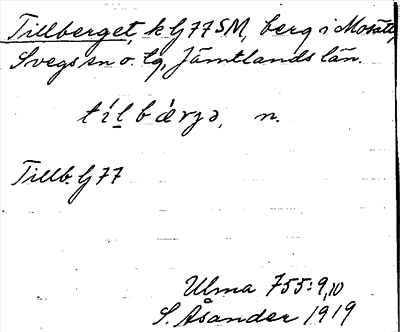 Tillberget, k Gj 77 SM, berg i Mosätt,
Svegs sn o. tg, Jämtlands län.
tíl̲bǽrjə, n.
Tillb. Gj 77
Ulma 755:9,10
S. Åsander 1919